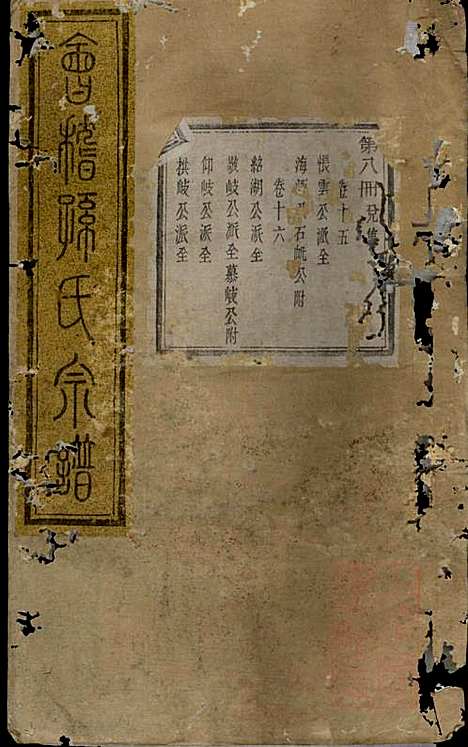 會稽孫氏宗譜
第八冊兌集
卷十五
悵雲公派全
海 公石 公附
卷十六
紹湖公派全
敬岐公派全慕岐公附
仰岐公派全
拱岐公派全